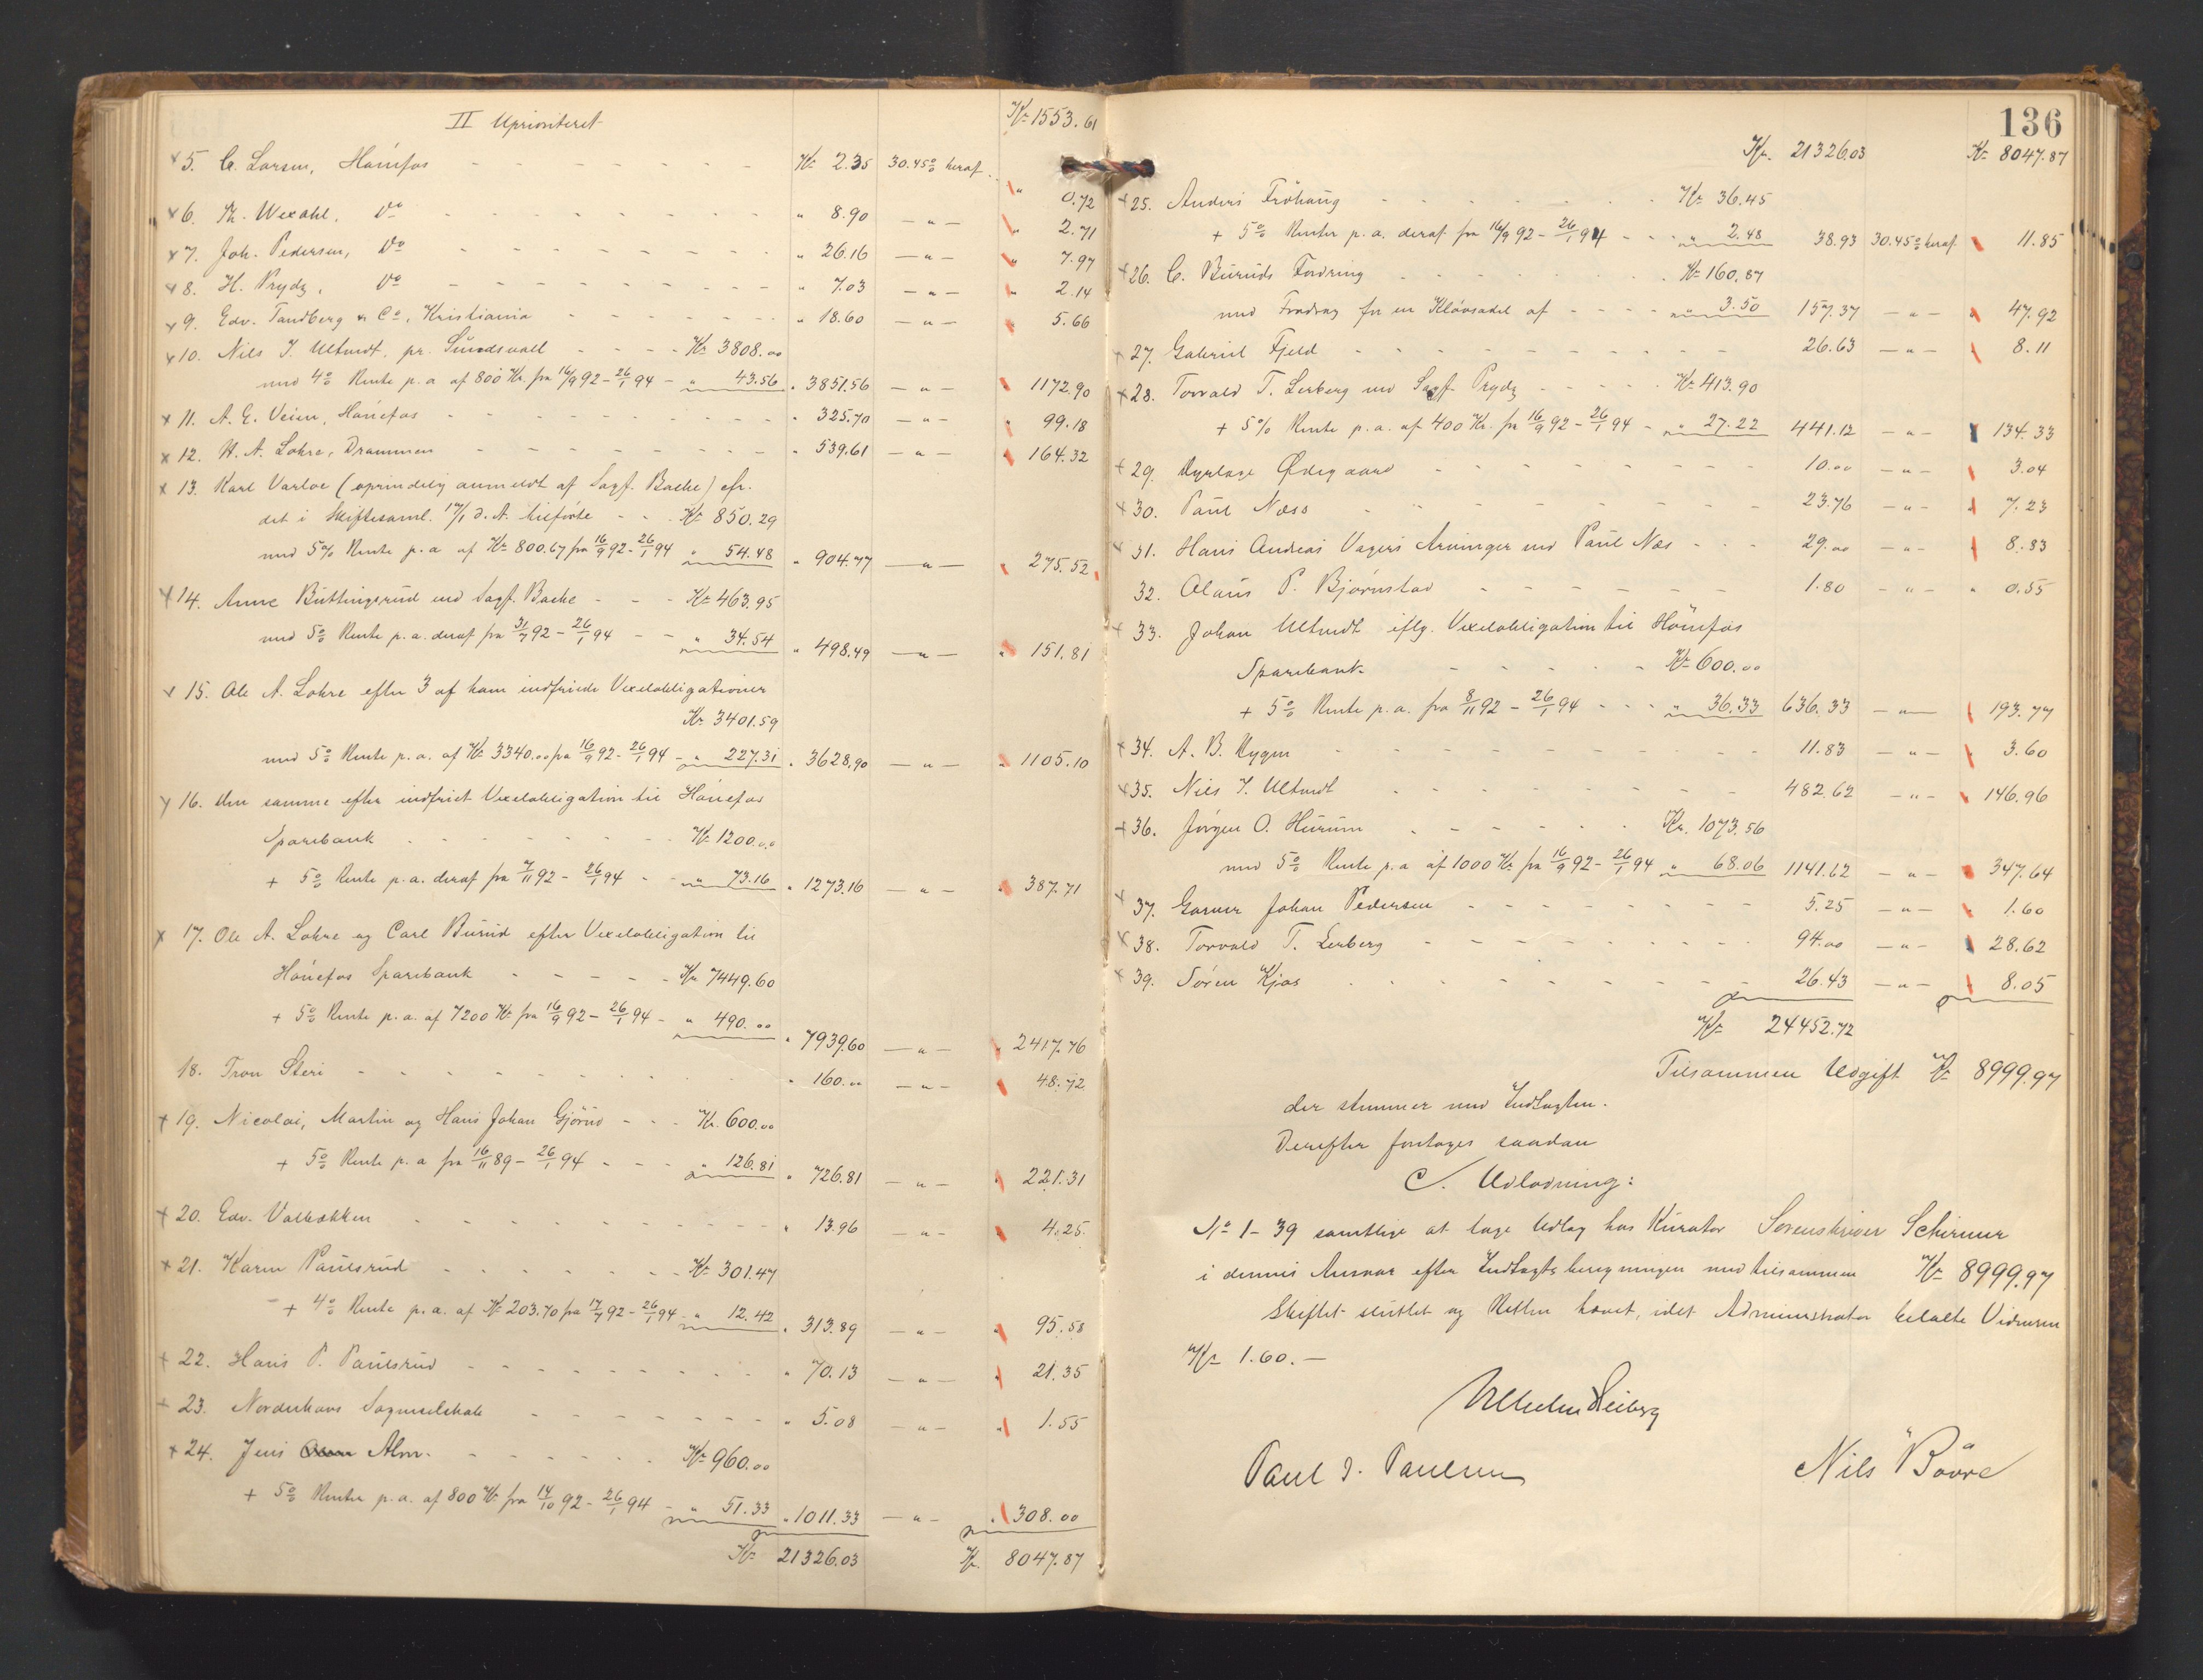 II Uprioriteret Kr 1553.61
5. C. Larsen, Hönefos - - - Kr. 2.35 30.45% heraf " 0.72
6. Th. Wexahl, Do - - - " 8.90 — " — " 2.71
7. Joh. Pedersen, Do - - - " 26.16 — " — " 7.97
8. H. Prydz, Do - - - " 7.03 — " — " 2.14
9. Edv. Tandberg & Co, Kristiania - - - " 18.60 — " — " 5.66
10. Nils J. Ultvedt, pr. Sundsvall - - - Kr 3808.00
med 4% Rente p.a af 800 Kr. fra 16/9 92 - 26/1 94 - " 43.56 " 3851.56 — " — " 1172.90
11. A. E. Veien, Hönefos - - - " 325.70 — " — " 99.18
12. H. A. Lohre, Drammen - - - " 539.61 — " — " 164.32
13. Karl Varloe (oprindelig anmeldt af Sagf. Bache) efr.
det i Skiftesaml. 17/1 d.A. tilförte - - Kr 850.29
med 5% Rente p.a af Kr 800.67 fra 16/9 92 - 26/1 94 " 54.48 " 904.77 — " — " 275.52
14. Anne Büttingsrud ved Sagf. Bache - - - Kr 463.95
med 5% Rente p.a. deraf fra 31/7 92 - 26/1 94 - - " 34.54 " 498.49 — " — " 151.81
15. Ole A. Lohre efter 3 af ham indfriede Vexelobligationer
Kr 3401.59
med 5% Rente p.a. af Kr 3340.00 fra 16/9 92 - 26/1 94 - " 227.31 " 3628.90 — " — " 1105.10
16. den samme efter indfriet Vexelobligation til Hönefos
Sparebank - - - Kr 1200.00
+ 5% Rente p.a. deraf fra 7/11 92 - 26/1 94 - " 73.16 " 1273.16 — " — " 387.71
17. Ole A. Lohre og Carl Burud efter Vexelobligation til
Hönefos Sparebank - - - Kr 7449.60
+ 5% Rente p.a. af 7200 Kr fra 16/9 92 - 26/1 94 - " 490.00 " 7939.60 — " — " 2417.76
18. Tron Steri - - - " 160.00 — " — " 48.72
19. Nicolai, Martin og Hans Johan Gjörud - - - Kr. 600.00
+ 5% Rente p.a fra 16/11 89 - 26/1 94 - - - " 126.81 " 726.81 — " — " 221.31
20. Edv. Valbækken - - - " 13.96 — " — " 4.25
21. Karen Paulsrud - - - Kr 301.47
+ 4% Rente p.a. af Kr 203.70 fra 17/7 92 - 26/1 94 - " 12.42 " 313.89 — " — " 95.58
22. Hans P. Paulsrud - - - " 70.13 — " — " 21.35
23. Norderhovs Sogneselskab - - - " 5.08 — " — " 1.55
24. Jens Alm. - - - Kr 960.00
+ 5% Renter p.a. af 800 Kr fra 14/10 92 - 26/1 94 - " 51.33 " 1011.33 — " — " 308.00
Kr 21326.03 Kr. 8047.87
136
Kr. 21326.03 Kr 8047.87
25. Anders Fröhaug - - - Kr 36.45
+ 5% Renter p.a. deraf fra 16/9 92 - 26/1 94 - - " 2.48 38.93 30.45% heraf " 11.85
26. C. Buruds Fordring - - - Kr 160.87
med Fradrag for en Klövsadel af - - - " 3.50 157.37 — " — " 47.92
27. Gabriel Fjeld - - - 26.63 — " — " 8.11
28. Torvald T. Lerberg ved Sagf. Prydz - - - Kr 413.90
+ 5% Rente p.a. af 400 Kr. fra 16/9 92 - 26/1 94 - " 27.22 441.12 — " — " 134.33
29. Dyrlæge Ødegaard - - - 10.00 — " — " 3.04
30. Paul Næss - - - 23.76 — " — " 7.23
31. Hans Andreas Vagers Arvinger ved Paul Næs - - - 29.00 — " — " 8.83
32. Olaus P. Bjørnstad - - - 1.80 — " — " 0.55
33. Johan Ultvedt iflg. Vexelobligation til Hönefos
Sparebank - - - Kr 600.00
+ 5% Rente p.a. fra 8/11 92 - 26/1 94 - - - " 36.33 636.33 — " — " 193.77
34. A. B. Nygen - - - 11.83 — " — " 3.60
35. Nils J. Ultvedt - - - 482.62 — " — " 146.96
36. Jörgen O. Hurum - - - Kr. 1073.56
med 5% Rente p.a af 1000 Kr fra 16/9 92 - 26/1 94 " 68.06 1141.62 — " — " 347.64
37. Garver Johan Pedersen - - - 5.25 — " — " 1.60
38. Torvald T. Lerberg - - - 94.00 — " — " 28.62
39. Sören Kjos - - - 26.43 — " — " 8.05
Kr 24452.72
Tilsammen Udgift Kr 8999.97
der stemmer med Indtægten.
Derefter foretages saadan
C. Udlodning:
No 1 - 39 samtlige at tage Udlæg hos Kurator Sorenskriver Schirmer
i dennes Ansvar efter Indtægtsberegningen med tilsammen Kr 8999.97
Skiftet sluttet og Retten hævet, idet Administrator betalte Vidneren
Kr 1.60. —
Vilhelm Heiberg
Paul J. Paulsen Nils Bövre